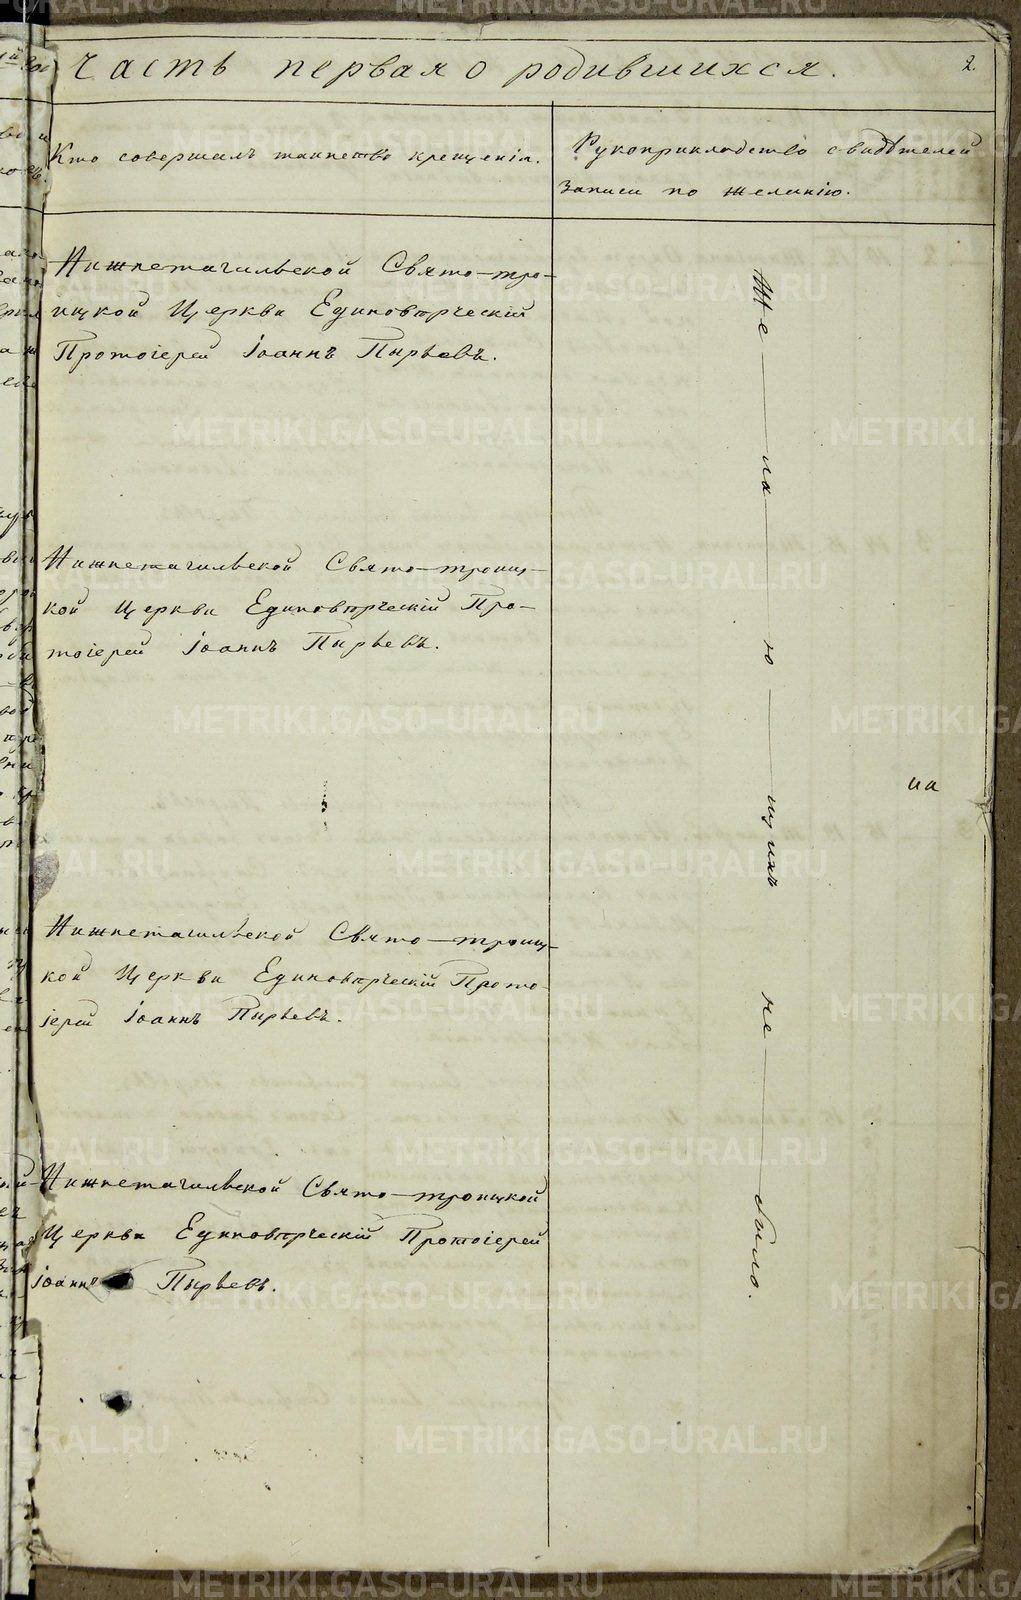 Часть первая о родившихся.
2.
Кто совершилъ таинство крещенія.
Рукоприкладство свидѣтелей
записи по желанію.
Нижнетагильской Свято-тро-
ицкой Церкви Единовѣрческій
Протоіерей Іоаннъ Пырьевъ.
Нижнетагильской Свято-троиц-
кой Церкви Единовѣрческій Про-
тоіерей Іоаннъ Пырьевъ.
Нижнетагильской Свято-троиц-
кой Церкви Единовѣрческій Прото-
іерей Іоаннъ Пырьевъ.
Нижнетагильской Свято-троицкой
Церкви Единовѣрческій Протоіерей
Іоаннъ Пырьевъ.
Же-ла-ю-щихъ не было.
METRIKI.GASO-URAL.RU